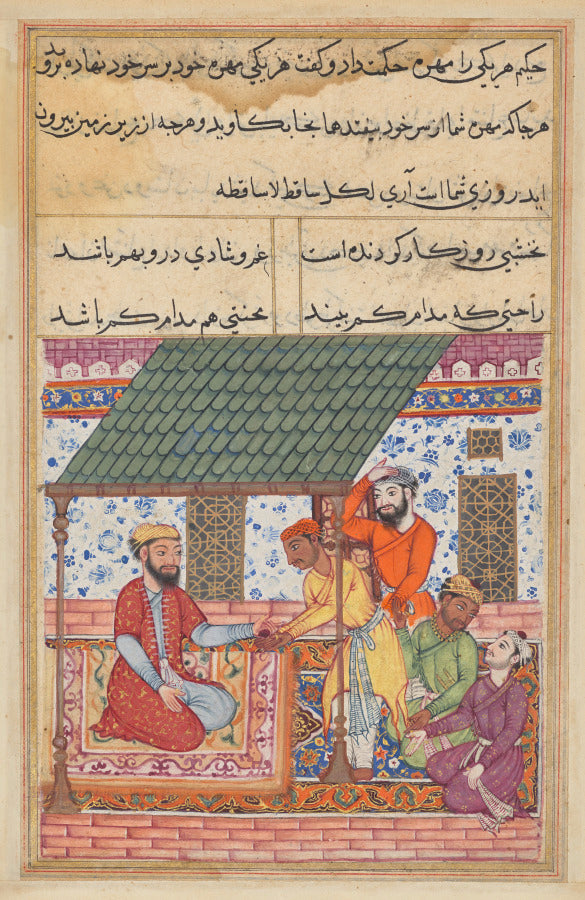 حکیم هر یکی را مهره حکمت داد و کفت هر یکی مهره خود بر سر خود نهاده بروید
هر جا که مهره شما از سر خود بیفتد هما نجا بکاوید و هر چه از زیر زمین بیرون
اید روزی شما است آری لکل ساقط لاساقطه
نخشبی روز کار کردنده است غم و شادی درو بهم باشد
راحتی که مدام کم بیند محنتی هم مدام کم باشد